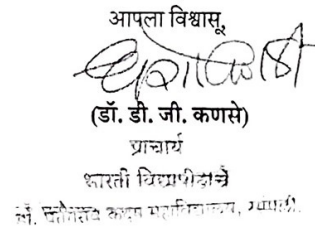 आपला विश्वासू,
(डॉ. डी. जी. कणसे)
प्राचार्य
भारती विद्यापीठाचे
डॉ. पतंगराव कदम महाविद्यालय, सांगली.